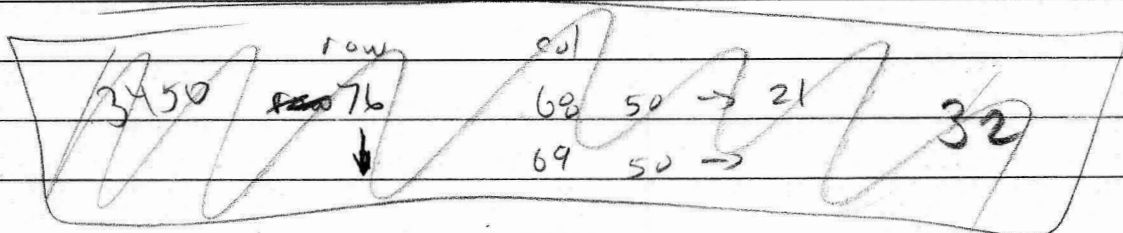 row col
3450 76 68 50 → 21 32
↓ 69 50 →